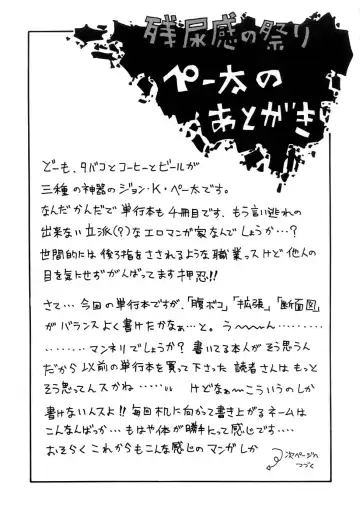 残尿感の祭り
ペー太の
あとがき
どーも、タバコとコーヒーとビールが
三種の神器のジョン・K・ペー太です。
なんだかんだで単行本も4冊目です、もう言い逃れの
出来ない立派(?)なエロマンガ家なんでしょうか…?
世間的には後ろ指をさされるような職業っスけど他人の
目を気にせずがんばってます押忍!!
さて…今回の単行本ですが、「腹ボコ」「拡張」「断面図」
がバランスよく書けたかなぁ…と。う〜〜〜ん………
………マンネリでしょうか?書いてる本人がそう思うん
だから以前の単行本を買って下さった読者さんはもっと
そう思ってんスかね……… けどなぁ〜こういうのしか
書けないんスよ!!毎回机に向かって書き上がるネームは
こんなんばっか…もはや体が勝手にって感じです…
おそらくこれからもこんな感じのマンガしか
次ページへ
つづく